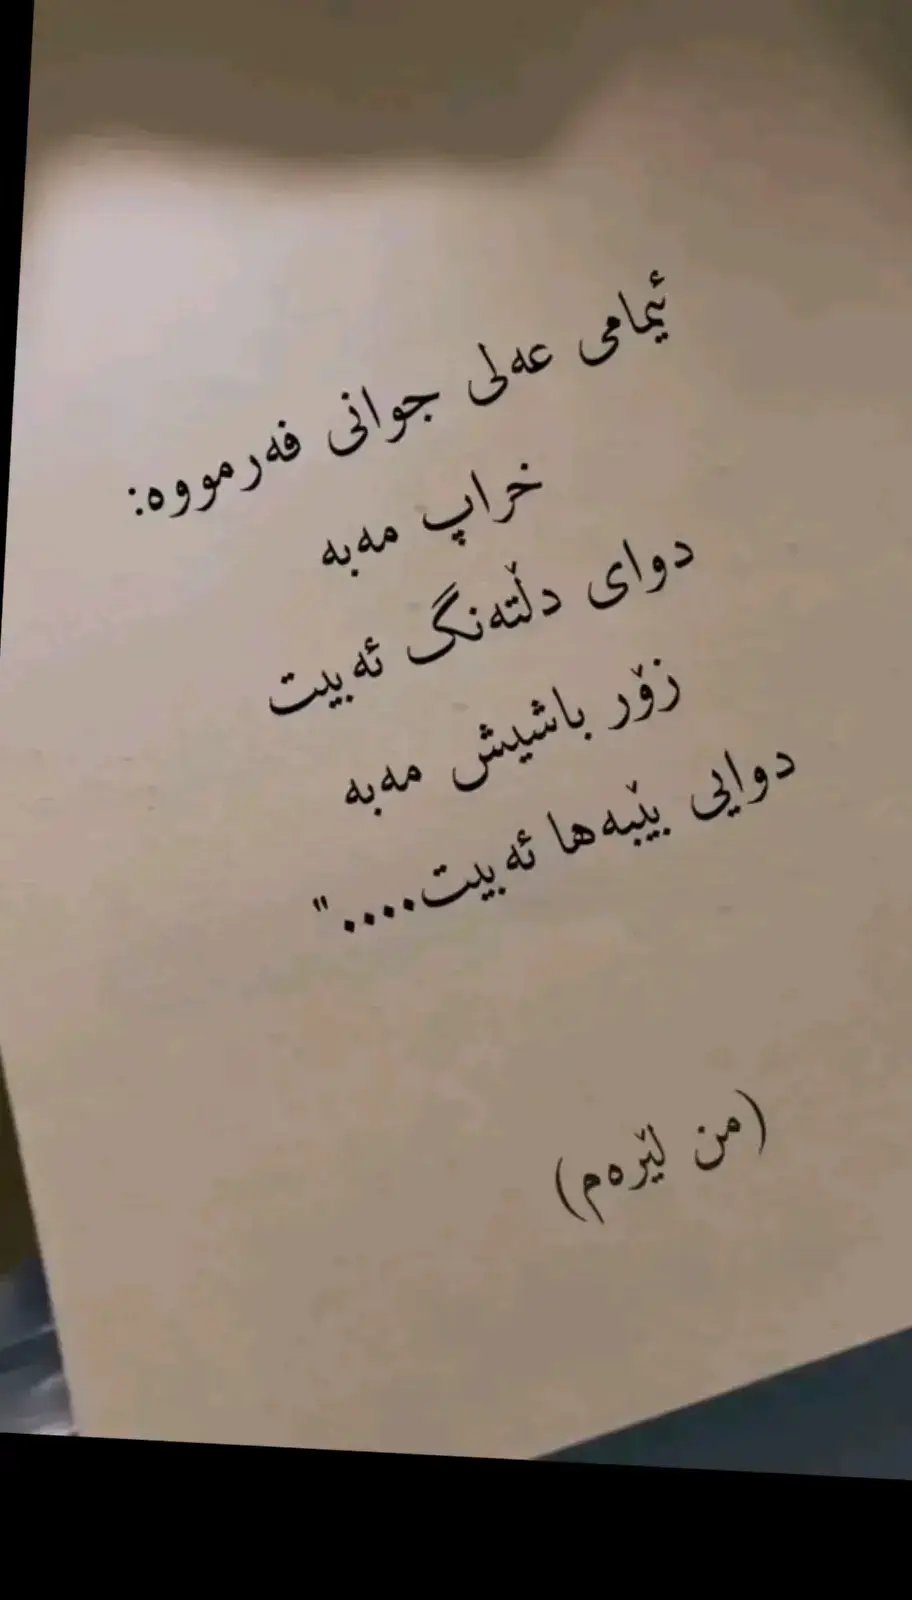 ئیمامی عەلی جوانی فەرمووە:
خراپ مەبە
دوای دڵتەنگ ئەبیت
زۆر باشیش مەبە
دوایی بێبەها ئەبیت...."
(من لێرەم)